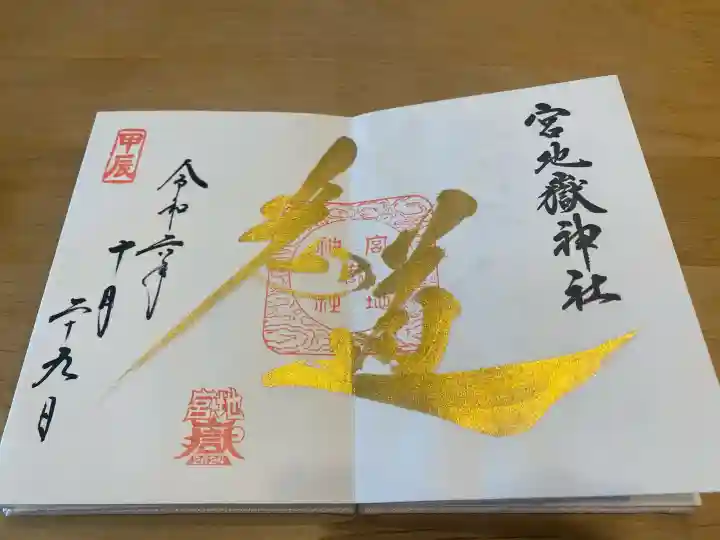 宮地嶽神社
光道
宮地嶽神社
甲辰
令和六年
十月
二十九日
宮地嶽